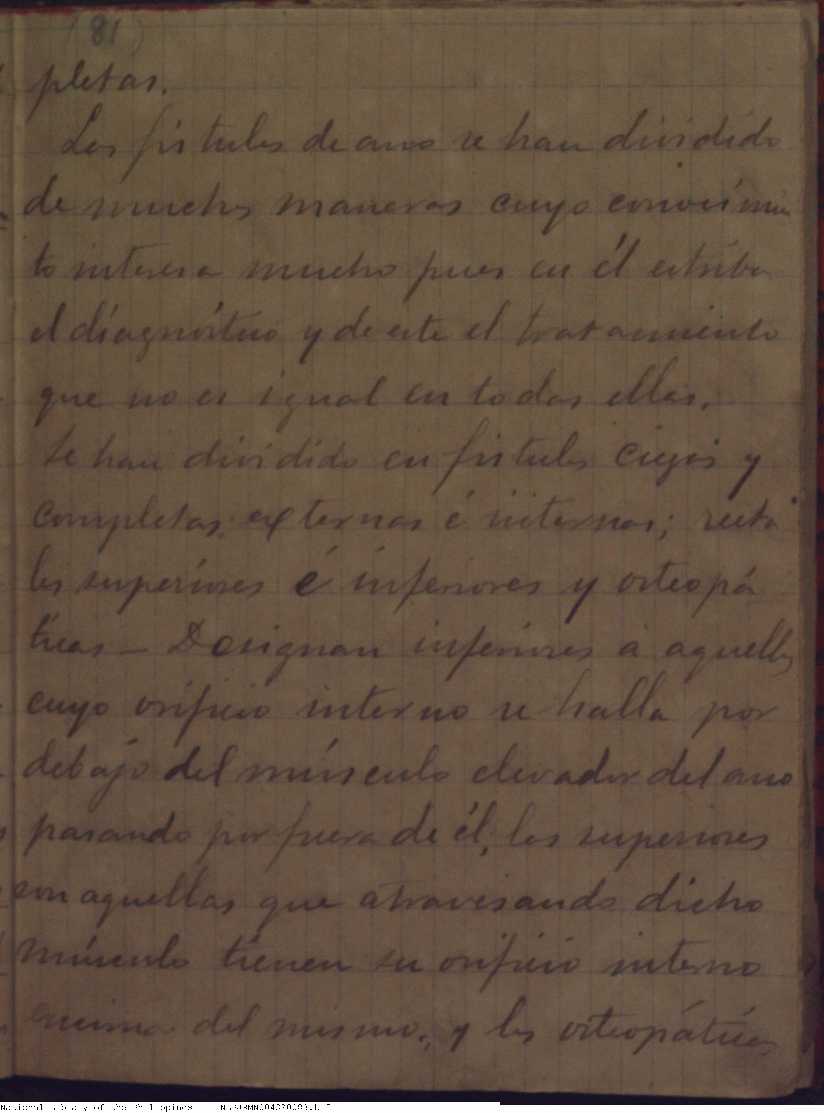 (81)
pletas.
Las fistulas de ano se han dividido
de muchas maneras cuyo conocimien
to interesa mucho pues en él estriba
el diagnóstico y de este el tratamiento
que no es igual en todas ellas.
Se han dividido en fistulas ciegas y
completas, externas é internas; recta
les superiores é inferiores y osteopá
ticas — Designan inferiores á aquellas
cuyo orificio interno se halla por
debajo del músculo elevador del ano
pasando por fuera de él; las superiores
son aquellas que atravesando dicho
músculo tienen su orificio interno
encima del mismo; y las osteopáticas
National Library of the Philippines